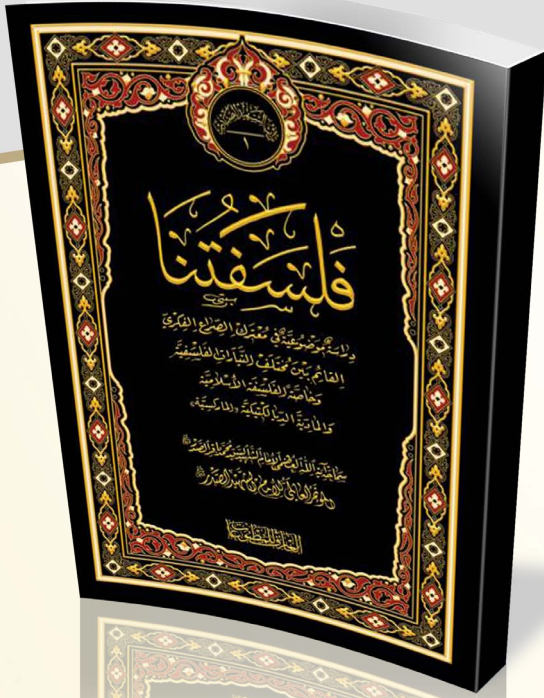 ١
فَلسَفَتُنا
دِرَاسَةٌ مَوضُوعيَّةٌ في مُعْتَرَك الصِّرَاعِ الفِكْريِّ
القَائِمِ بَيْن مُخْتَلَفِ التَّيَّاراتِ الفَلْسَفيَّةِ
وَخَاصَّةً الفَلْسَفَة الإسْلَاميَّة
وَالمَاديَّةَ الديَالِكْتِيكيَّة «المَاركسيَّة»
المؤتمر العالمي للإمام الشهيد الصدر